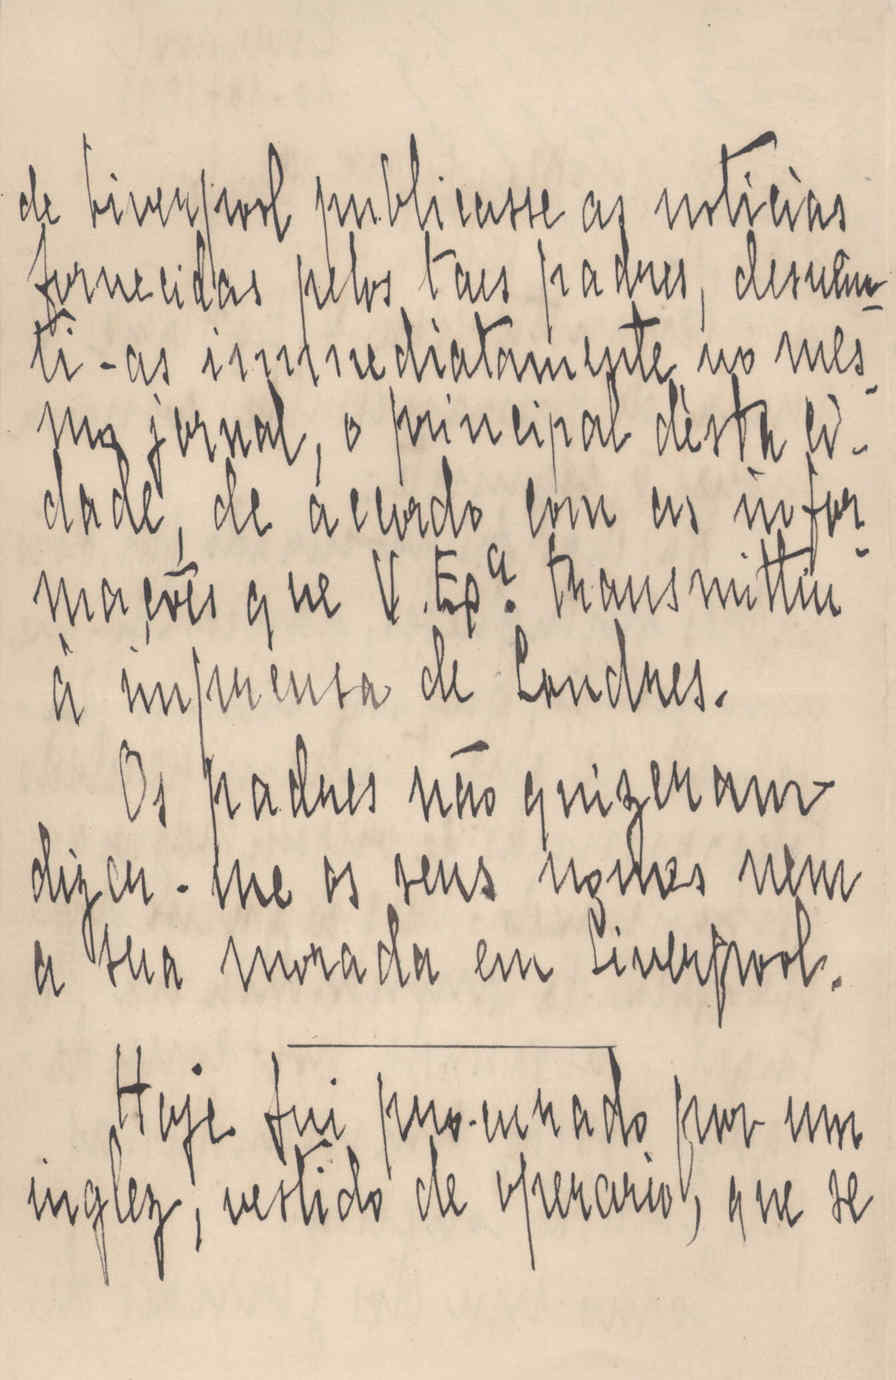 de Liverpool publicasse as noticias
fornecidas pelos taes padres, desmen-
ti-as immediatamente no mes-
mo jornal, o principal désta ci-
dade, de acordo com as infor-
mações que V. Exª. transmittiu
á imprensa de Londres.
Os padres não quizeram
dizer-me os seus nomes nem
a sua morada em Liverpool.
Hoje fui procurado por um
inglez, vestido de operario, que se